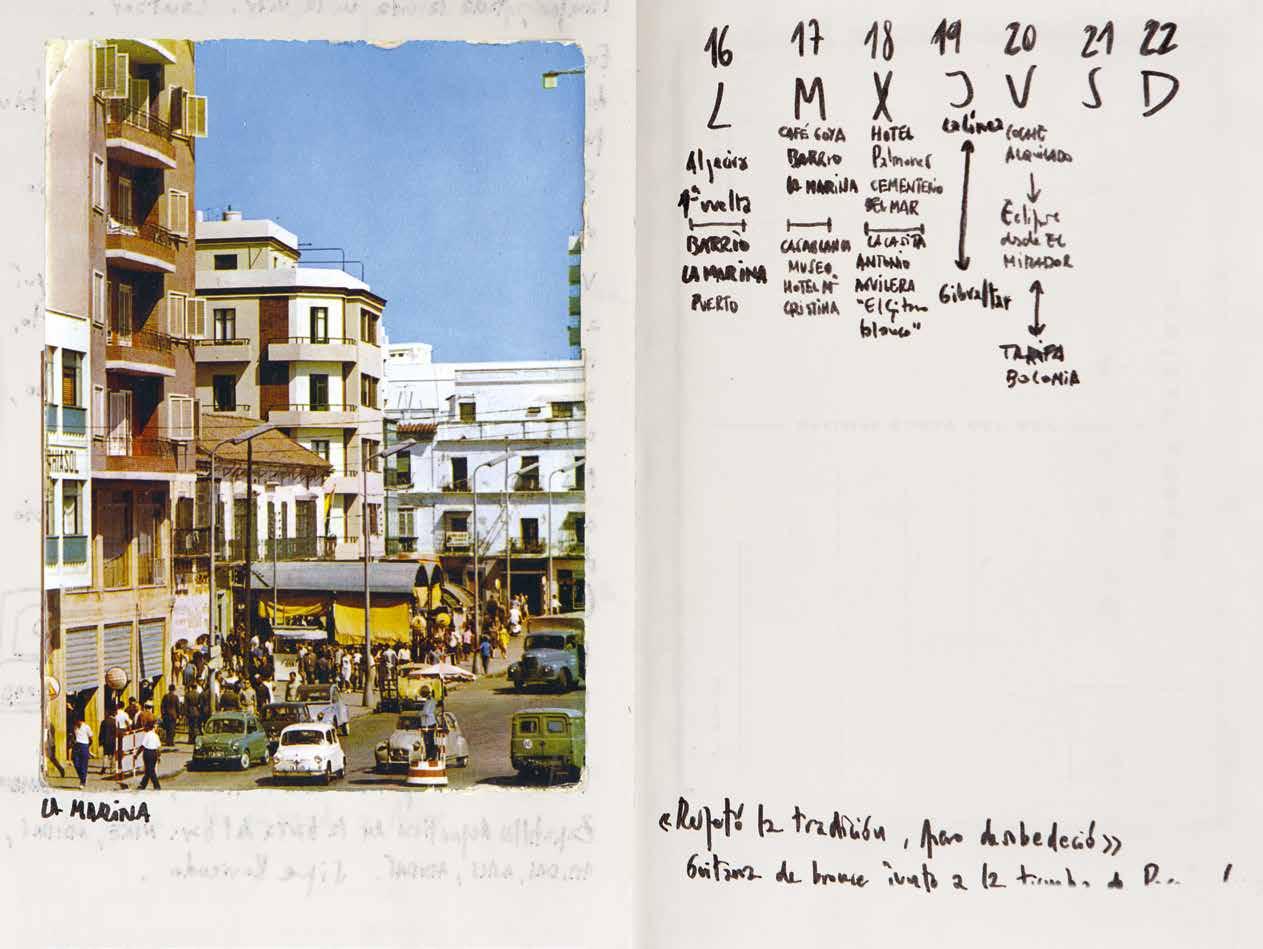 HIASOL
LA MARINA
16 17 18 19 20 21 22
L M X J V S D
Algeciras
1ª vuelta
BARRIO
LA MARINA
PUERTO
CAFÉ GOYA
BARRIO
LA MARINA
CASABLANCA
MUSEO
HOTEL Mª
CRISTINA
HOTEL
Palmones
CEMENTERIO
DEL MAR
LA CASITA
ANTONIO
AGUILERA
"El Gitano
blanco"
La Línea
Gibraltar
COCHE
ALQUILADO
Eclipse
desde EL
MIRADOR
TARIFA
BOLONIA
«Respetó la tradición, pero desobedeció»
Guitarra de bronce junto a la tumba de